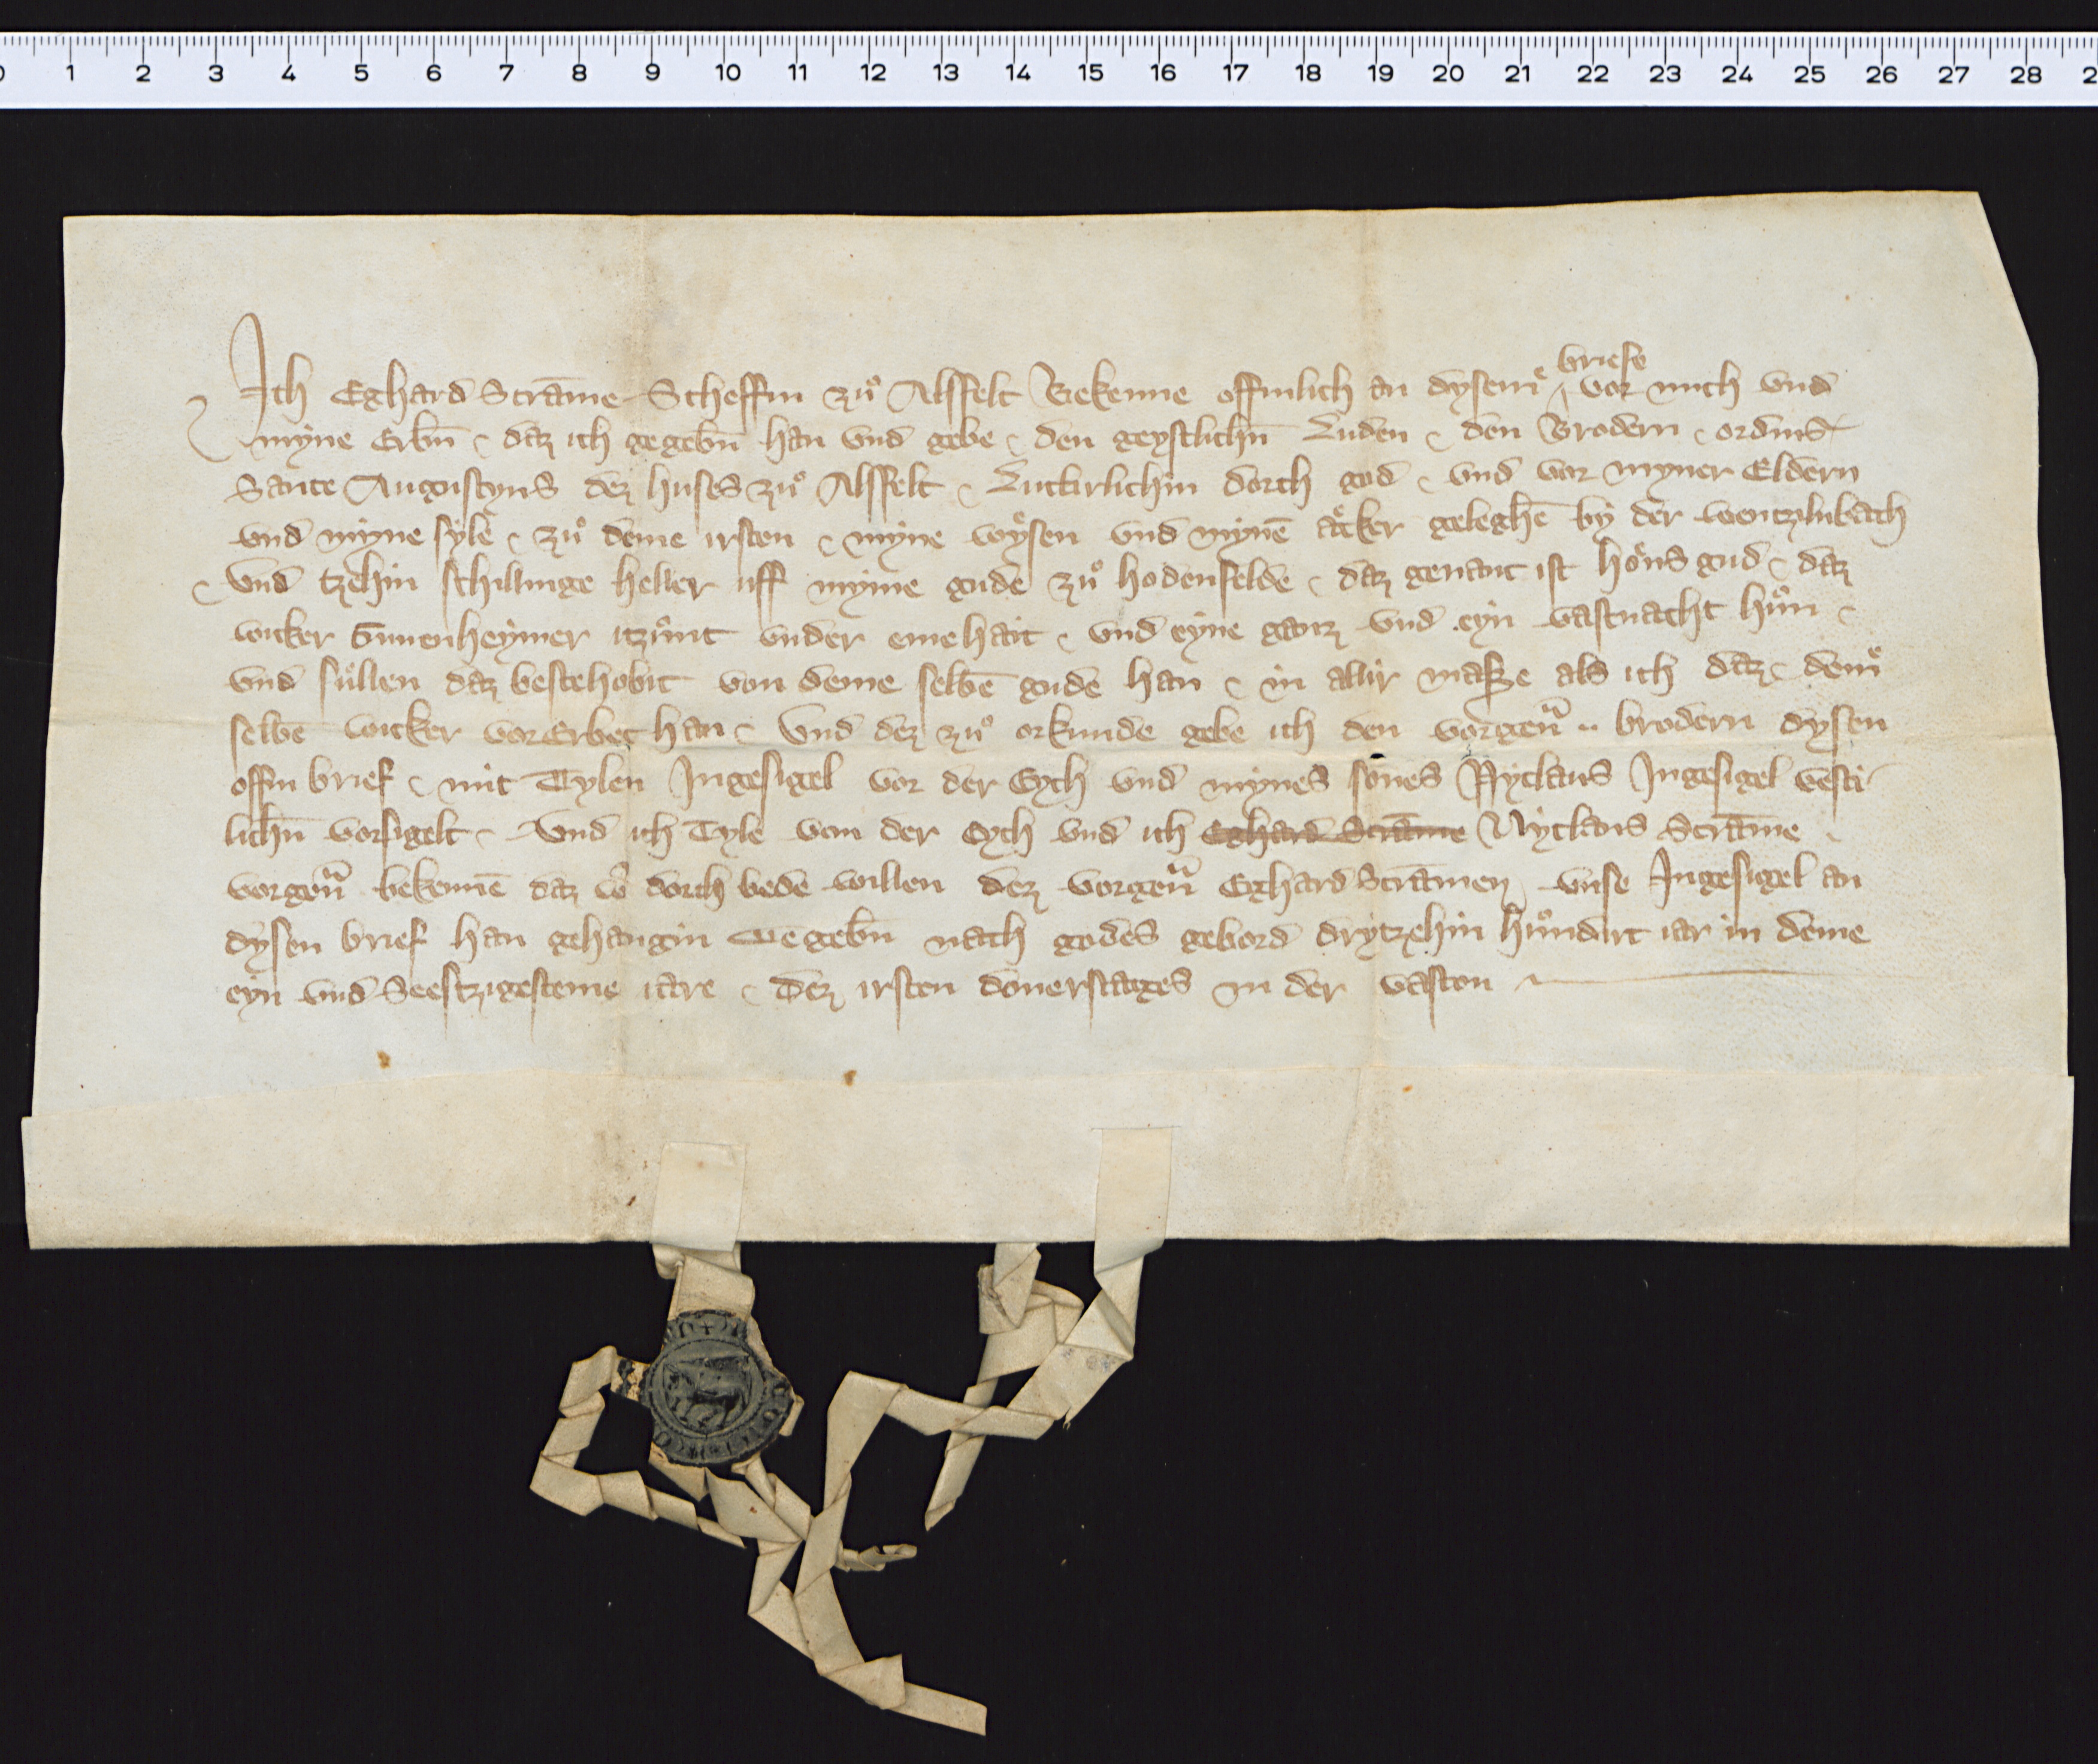 0 1 2 3 4 5 6 7 8 9 10 11 12 13 14 15 16 17 18 19 20 21 22 23 24 25 26 27 28 2
briefe
Ich Eghard Strāme Scheffin zuͦ Alsfelt Bekenne offinlich an dysemͤ vor mich vnd
myne Erbin̄ daz ich gegebin̄ han vnd gebe den geystlichin̄ Luden den Brodern ordins
Sante Augustyns dez huses zuͦ Alsfelt Luttirlichin dorch god vnd vor myner Eldern
vnd myne syle zuͦ deme irsten myne wyͤsen vnd mynē aͤcker geleghē by der wentzlnbach
vnd tzehin schillinge heller uff myme gude zuͦ hodenfelde daz genant ist hoͤns gud daz
wicker Gunenheymer itzuͦnt vnder eme hait vnd eyne ganz vnd eyn vastnacht huͦn
vnd suͤllen daz bestehobit von deme selbē gude han in allir masze als ich daz demͤ
selbē wicker vor Erbet han Vnd dez zuͦ orkunde gebe ich den vorgen̄ brodern dysen
offin brief mit Tylen Ingesigel vor der Eych vnd mynes sones Nyclaus Ingesigel vesti
lichin̄ vorsigelt Vnd ich Tyle von der Eych vnd ich Eghard Strāme Nyclaus Strāme
vorgen̄ bekennē daz wͥ dorch bede willen dez vorgen̄ Eghard Strāmen vnse Ingesigel an
dysen brief han gehangin gegebin̄ nach godes gebord drytzehin huͦndirt iar in deme
eyn vnd Seestzigesteme iare Dez irsten donerstages in der vasten